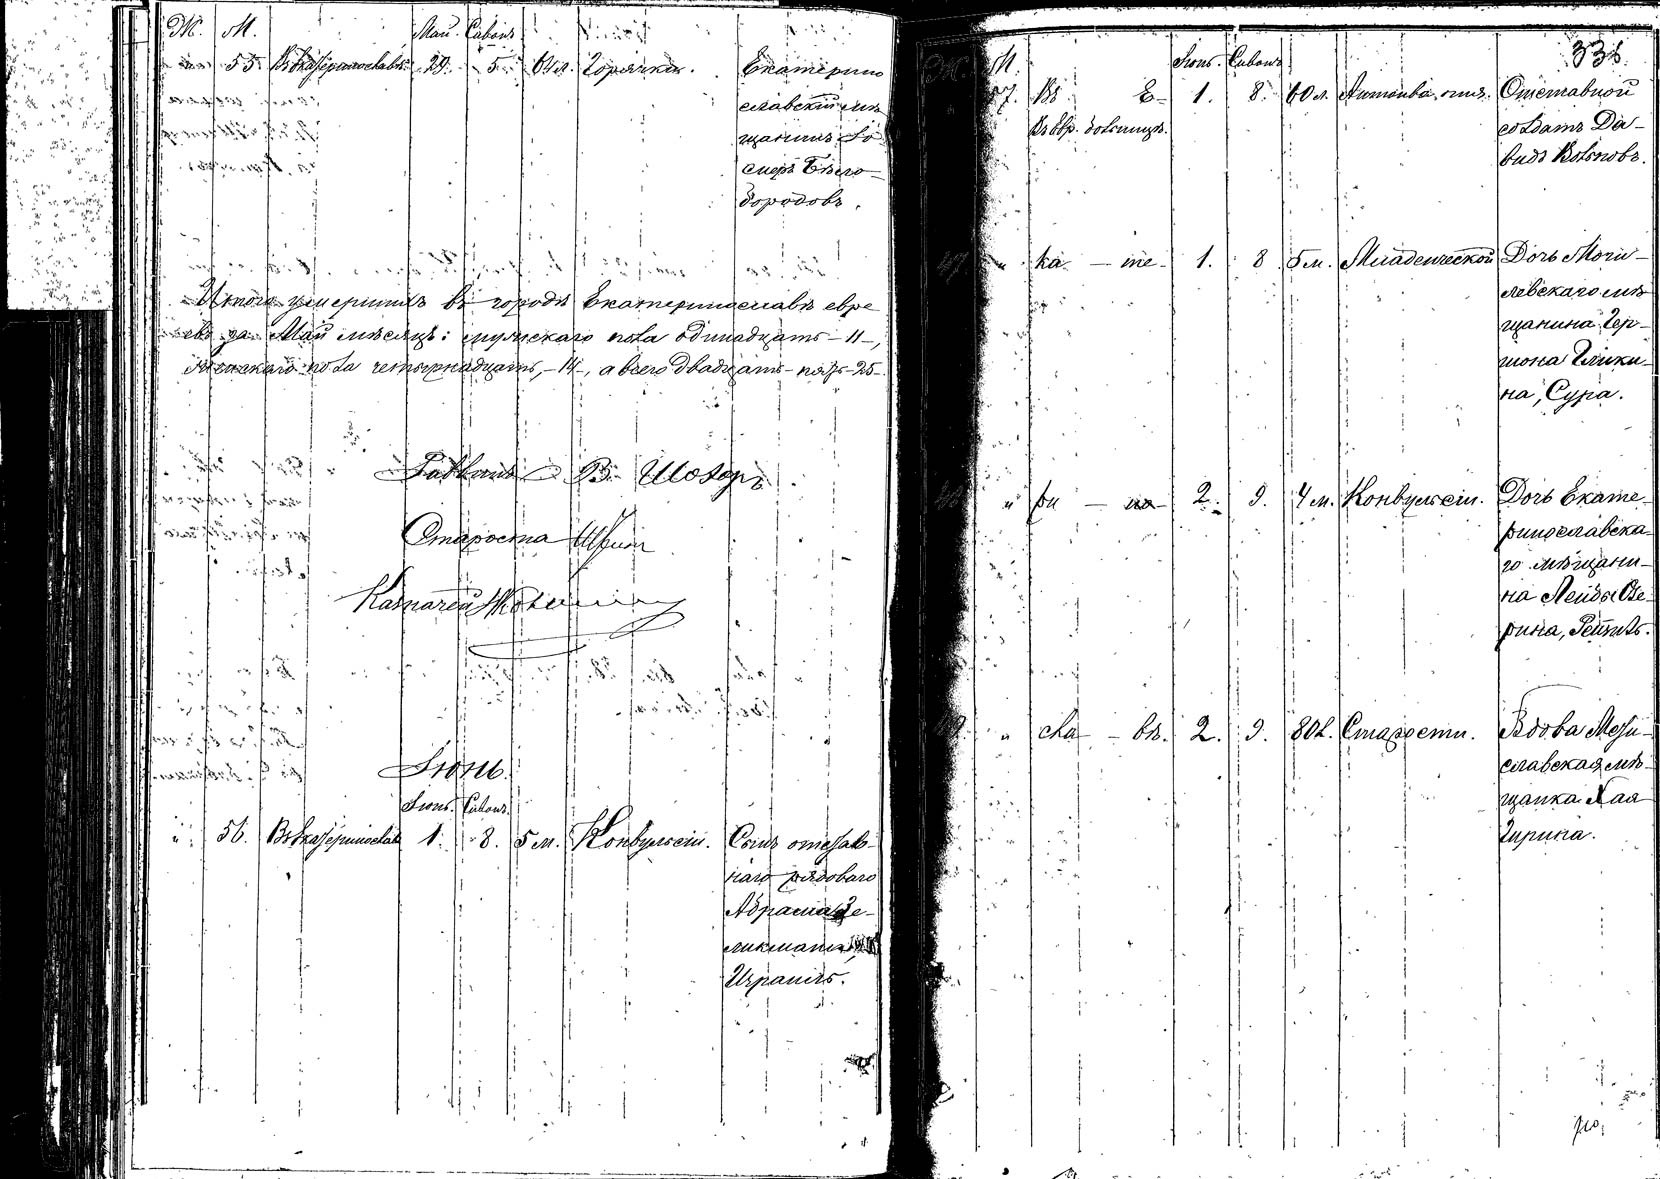 Ж. М. Май. Сивонъ
55 Въ Екатеринославѣ. 29. 5. 61 л. Горячки. Екатерино
славскій мѣ
щанинъ Іо
сифъ Бѣло
бородовъ.
Итого умершихъ въ городѣ Екатеринославѣ евре
евъ за Май мѣсяцъ: мужескаго пола одинадцать - 11 -,
женскаго пола четырнадцать, - 14 -, а всего двадцать - пять - 25 -
Раввинъ В. Шохоръ
Староста
Казначей
Іюнь.
Іюнь. Сивонъ.
" 56. Въ Екатеринославѣ 1. 8. 5 м. Конвульсіи. Сынъ отстав-
наго рядоваго
Абрама Зе-
ликмана,
Израиль.
336.
Ж. М. Іюнь. Сивонъ
57. Въ Е- 1. 8. 60 л. Отставной
Въ Евр. больницѣ. солдатъ Да-
видъ Волковъ.
47. " ка - те- 1. 8. 5 м. Младенческой Дочь Моги-
левскаго мѣ-
щанина Гер-
шона Глики-
на, Сура.
48. " ри - но- 2. 9. 4 м. Конвульсіи. Дочь Екате-
ринославска-
го мѣщани-
на Лейбы Зе-
рина, Рейзль.
49. " сла - вѣ. 2. 9. 80 л. Старости. Вдова Мсти-
славская мѣ-
щанка Хая
Гирина.